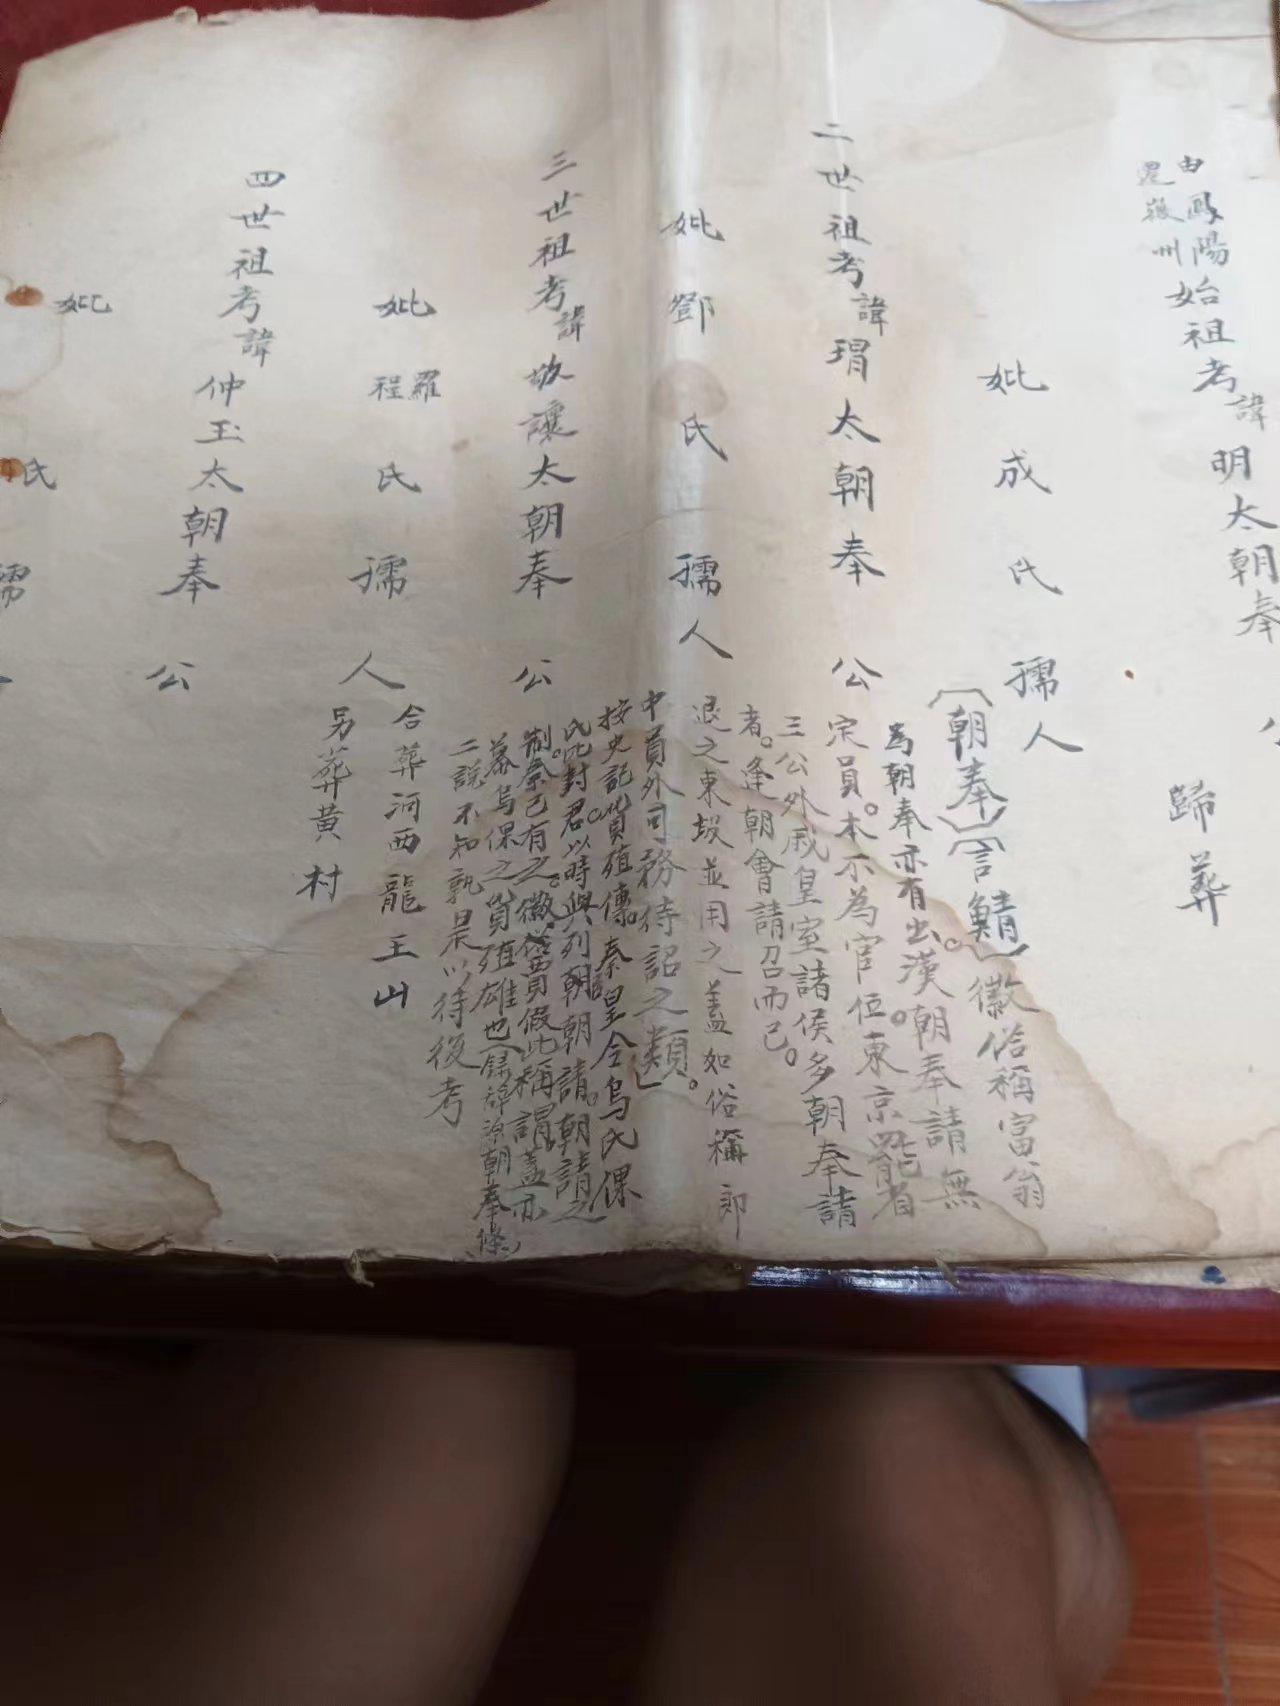 由鳳陽
遷徽州
始祖考諱明太朝奉公
歸葬
妣成氏孺人
二世祖考諱瑁太朝奉公
妣鄧氏孺人
〔朝奉〕〔言鯖〕徽俗稱富翁
為朝奉亦有出。漢朝奉請無
定員。本不為官位。東京罷省
三公外戚皇室諸侯多朝奉請
者。逢朝會請召而已。
退之東坡並用之蓋如俗稱郎
中員外司務待詔之類〕。
按史記貨殖傳。秦皇令烏氏倮
氏比封君。以時與列朝朝請。朝請之
制。秦已有之。徽俗賈假此稱謂。蓋亦
慕烏倮之貨殖雄也(錄辭源朝奉條)
二說不知孰是以待後考
三世祖考諱敬讓太朝奉公
妣羅程氏孺人
合葬河西龍王山
另葬黃村
四世祖考諱仲玉太朝奉公
妣 氏孺人